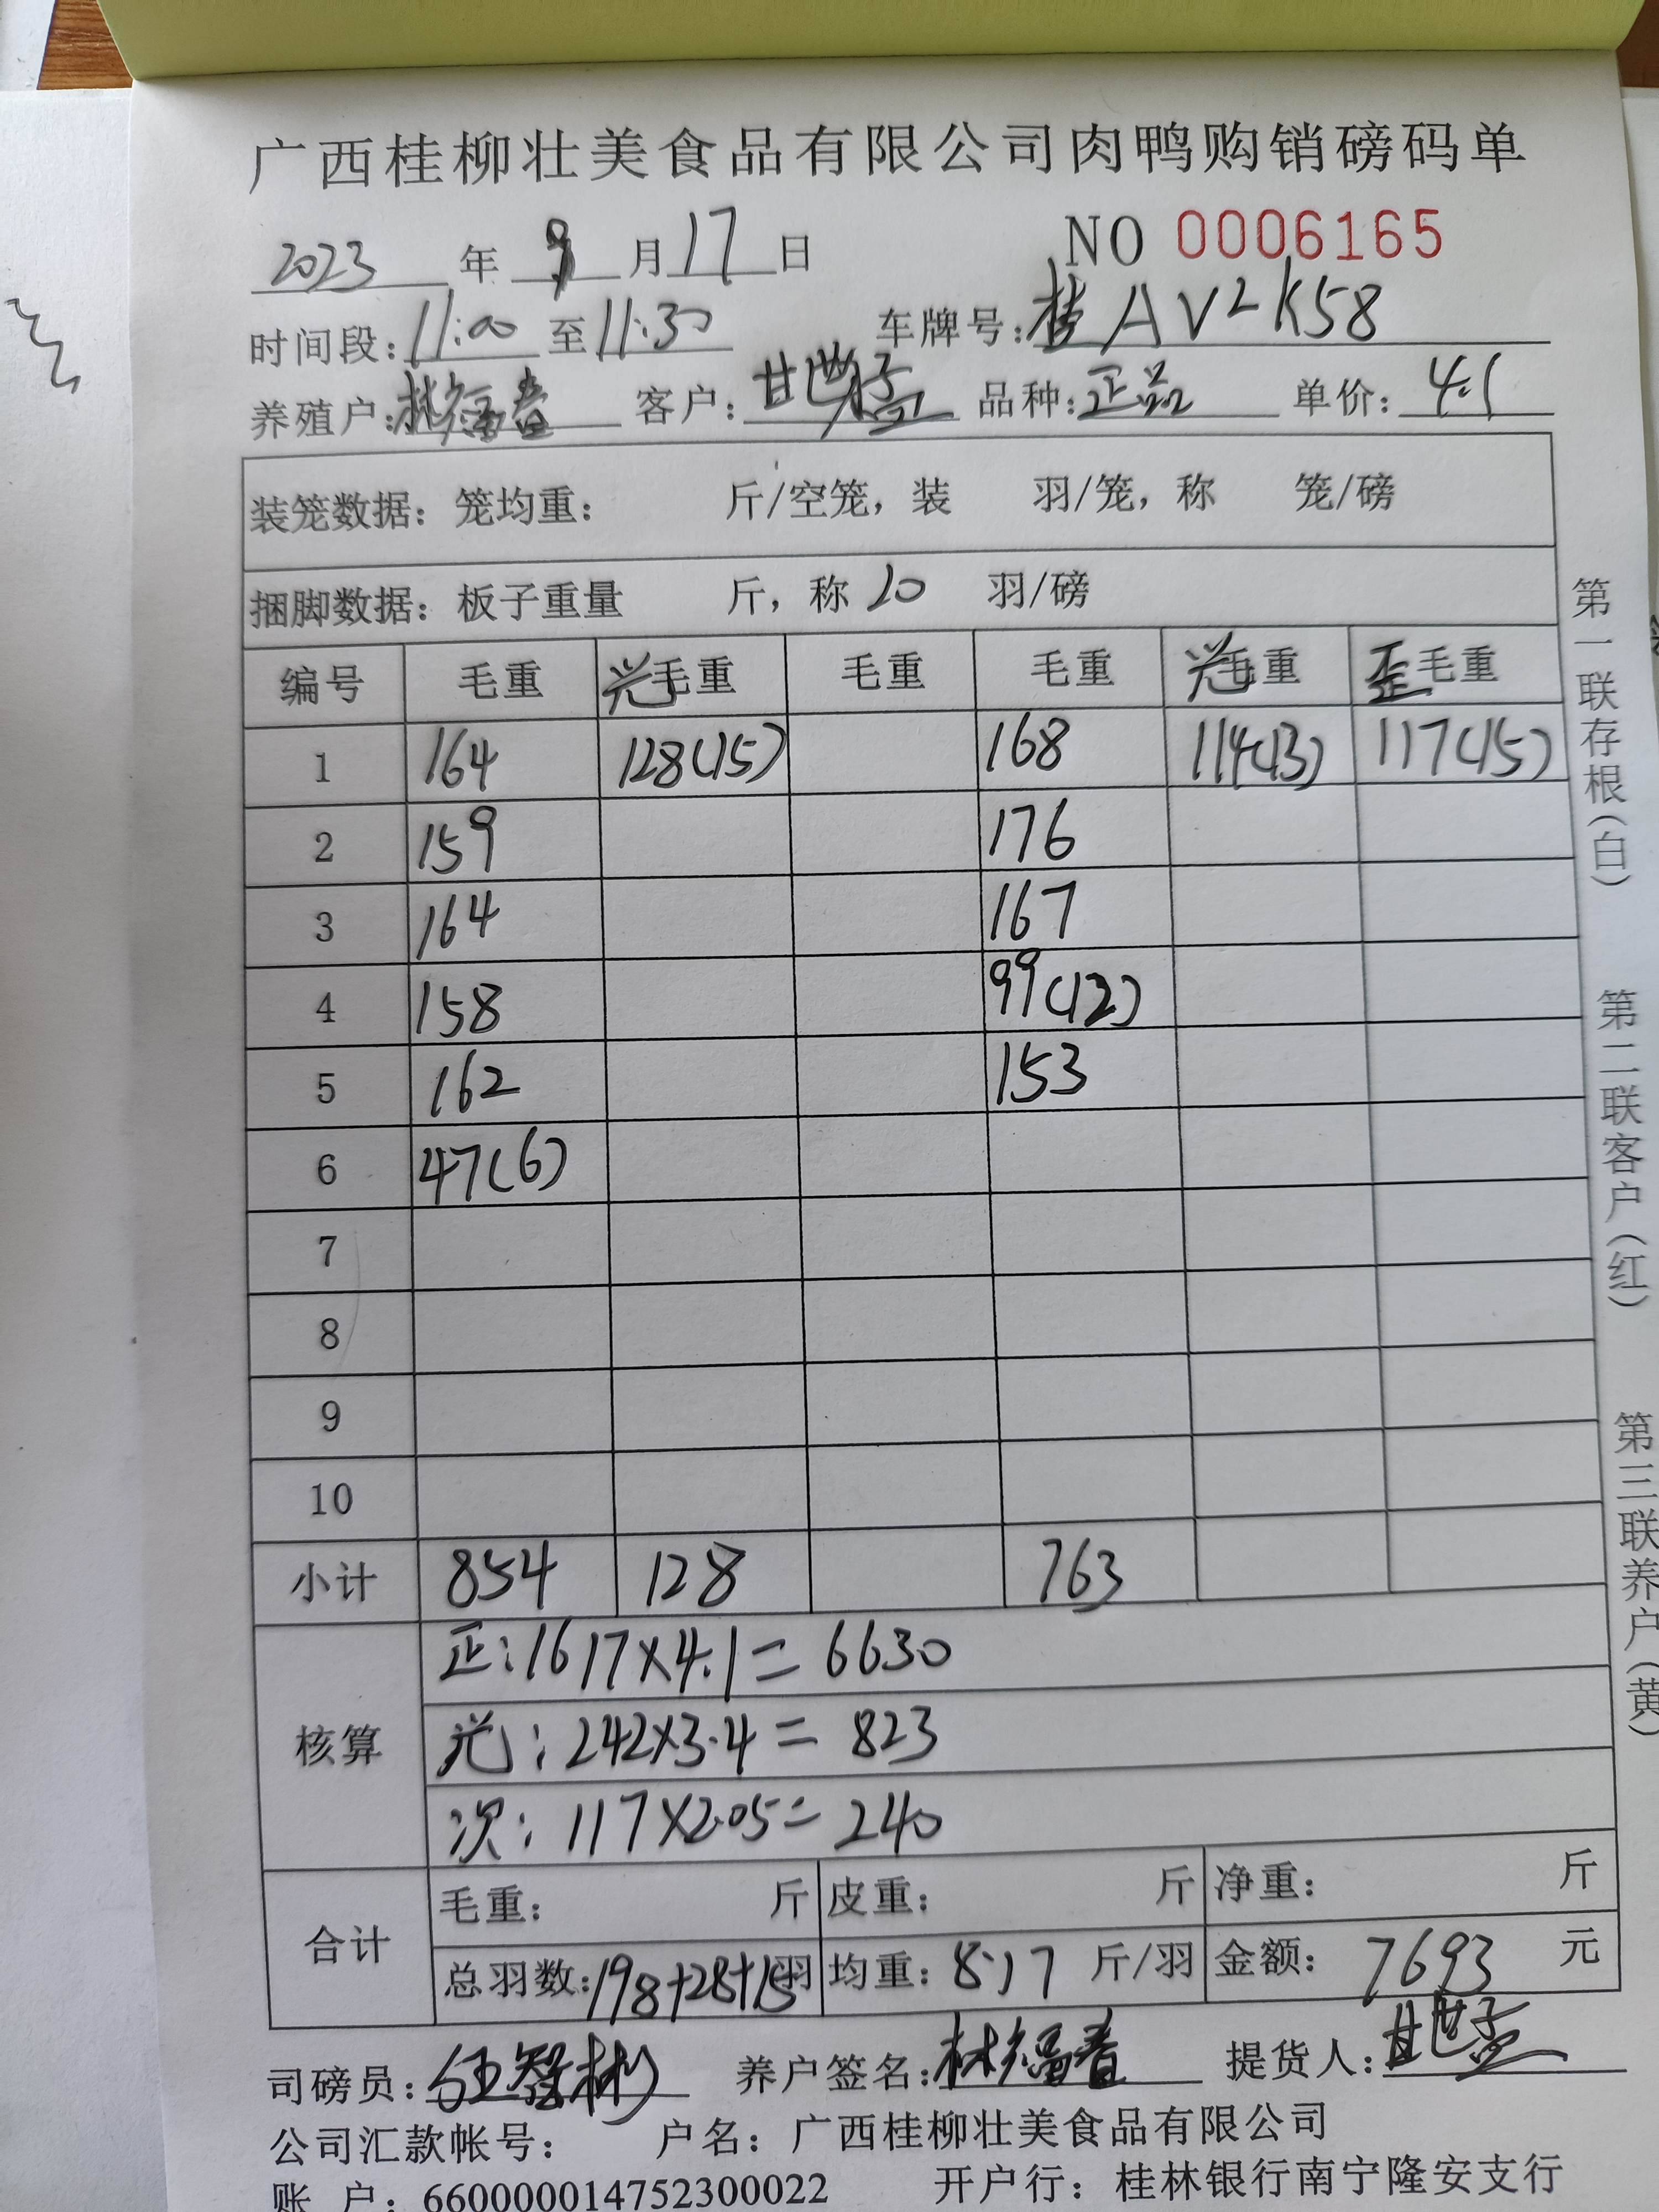 广西桂柳壮美食品有限公司肉鸭购销磅码单
2023 年 9 月 17 日 NO 0006165
时间段: 11:00 至 11:30 车牌号: 桂AV2K58
养殖户: 林福春 客户: 甘世孟 品种: 正品 单价: 4.1
装笼数据: 笼均重: 斤/空笼, 装 羽/笼, 称 笼/磅
捆脚数据: 板子重量 斤, 称 20 羽/磅
编号 毛重 光毛重 毛重 毛重 光毛重 歪毛重
1 164 128(15) 168 114(13) 117(15)
2 159 176
3 164 167
4 158 99(12)
5 162 153
6 47(6)
7
8
9
10
小计 854 128 763
核算
正: 1617×4.1= 6630
光: 242×3.4= 823
次: 117×2.05= 240
合计
毛重: 斤 皮重: 斤 净重: 斤
总羽数: 198+28+15羽 均重: 8.17 斤/羽 金额: 7693 元
司磅员: 智彬 养户签名: 林福春 提货人: 甘世孟
公司汇款帐号: 户名: 广西桂柳壮美食品有限公司
账 户: 660000014752300022 开户行: 桂林银行南宁隆安支行
第一联存根(白) 第二联客户(红) 第三联养户(黄)